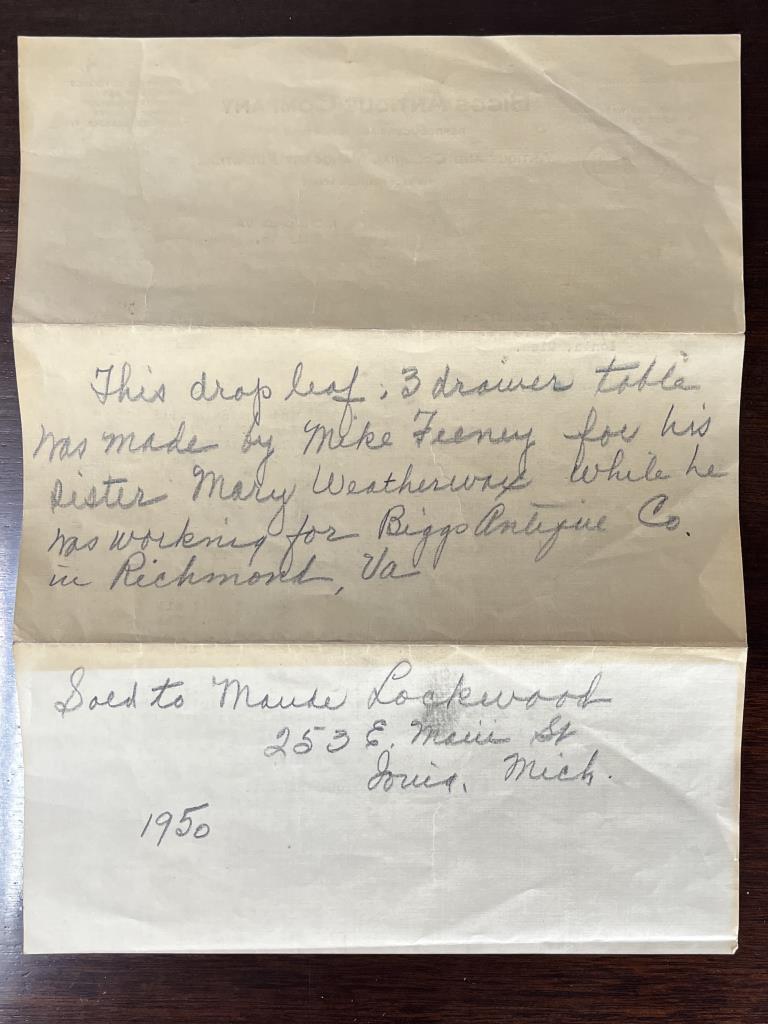 BIGGS ANTIQUE COMPANY
This drop leaf, 3 drawer table
was made by Mike Feeney for his
sister Mary Weatherwax while he
was working for Biggs Antique Co.
in Richmond, Va
Sold to Maude Lockwood
253 E. Main St
Ionia, Mich.
1950